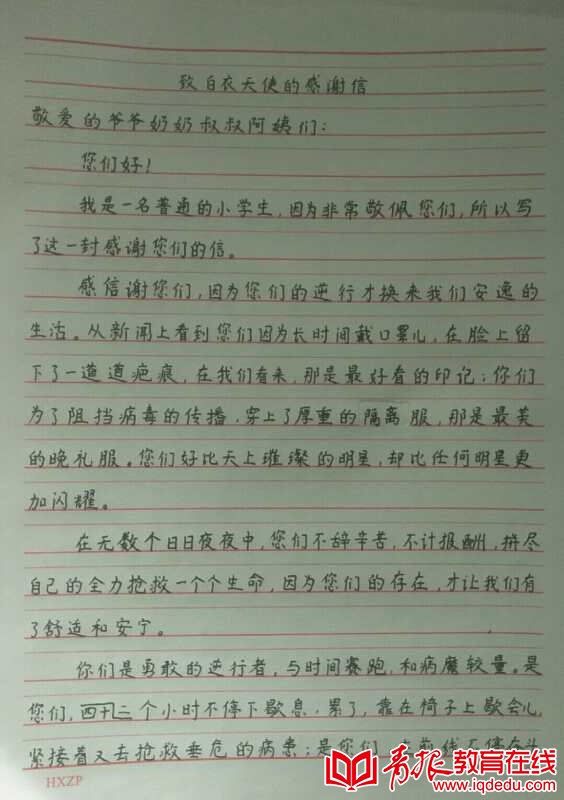 致白衣天使的感谢信
敬爱的爷爷奶奶叔叔阿姨们：
您们好！
我是一名普通的小学生，因为非常敬佩您们，所以写
了这一封感谢您们的信。
感信谢您们，因为您们的逆行才换来我们安逸的
生活。从新闻上看到您们因为长时间戴口罩儿，在脸上留
下了一道道疤痕，在我们看来，那是最好看的印记；你们
为了阻挡病毒的传播，穿上了厚重的隔离服，那是最美
的晚礼服。您们好比天上璀璨的明星，却比任何明星更
加闪耀。
在无数个日日夜夜中，您们不辞辛苦，不计报酬，拼尽
自己的全力抢救一个个生命，因为您们的存在，才让我们有
了舒适和安宁。
你们是勇敢的逆行者，与时间赛跑，和病魔较量。是
您们，四十二个小时不停下歇息，累了，靠在椅子上歇会儿，
紧接着又去抢救垂危的病患；是您们
HXZP
青报教育在线
www.iqdedu.com